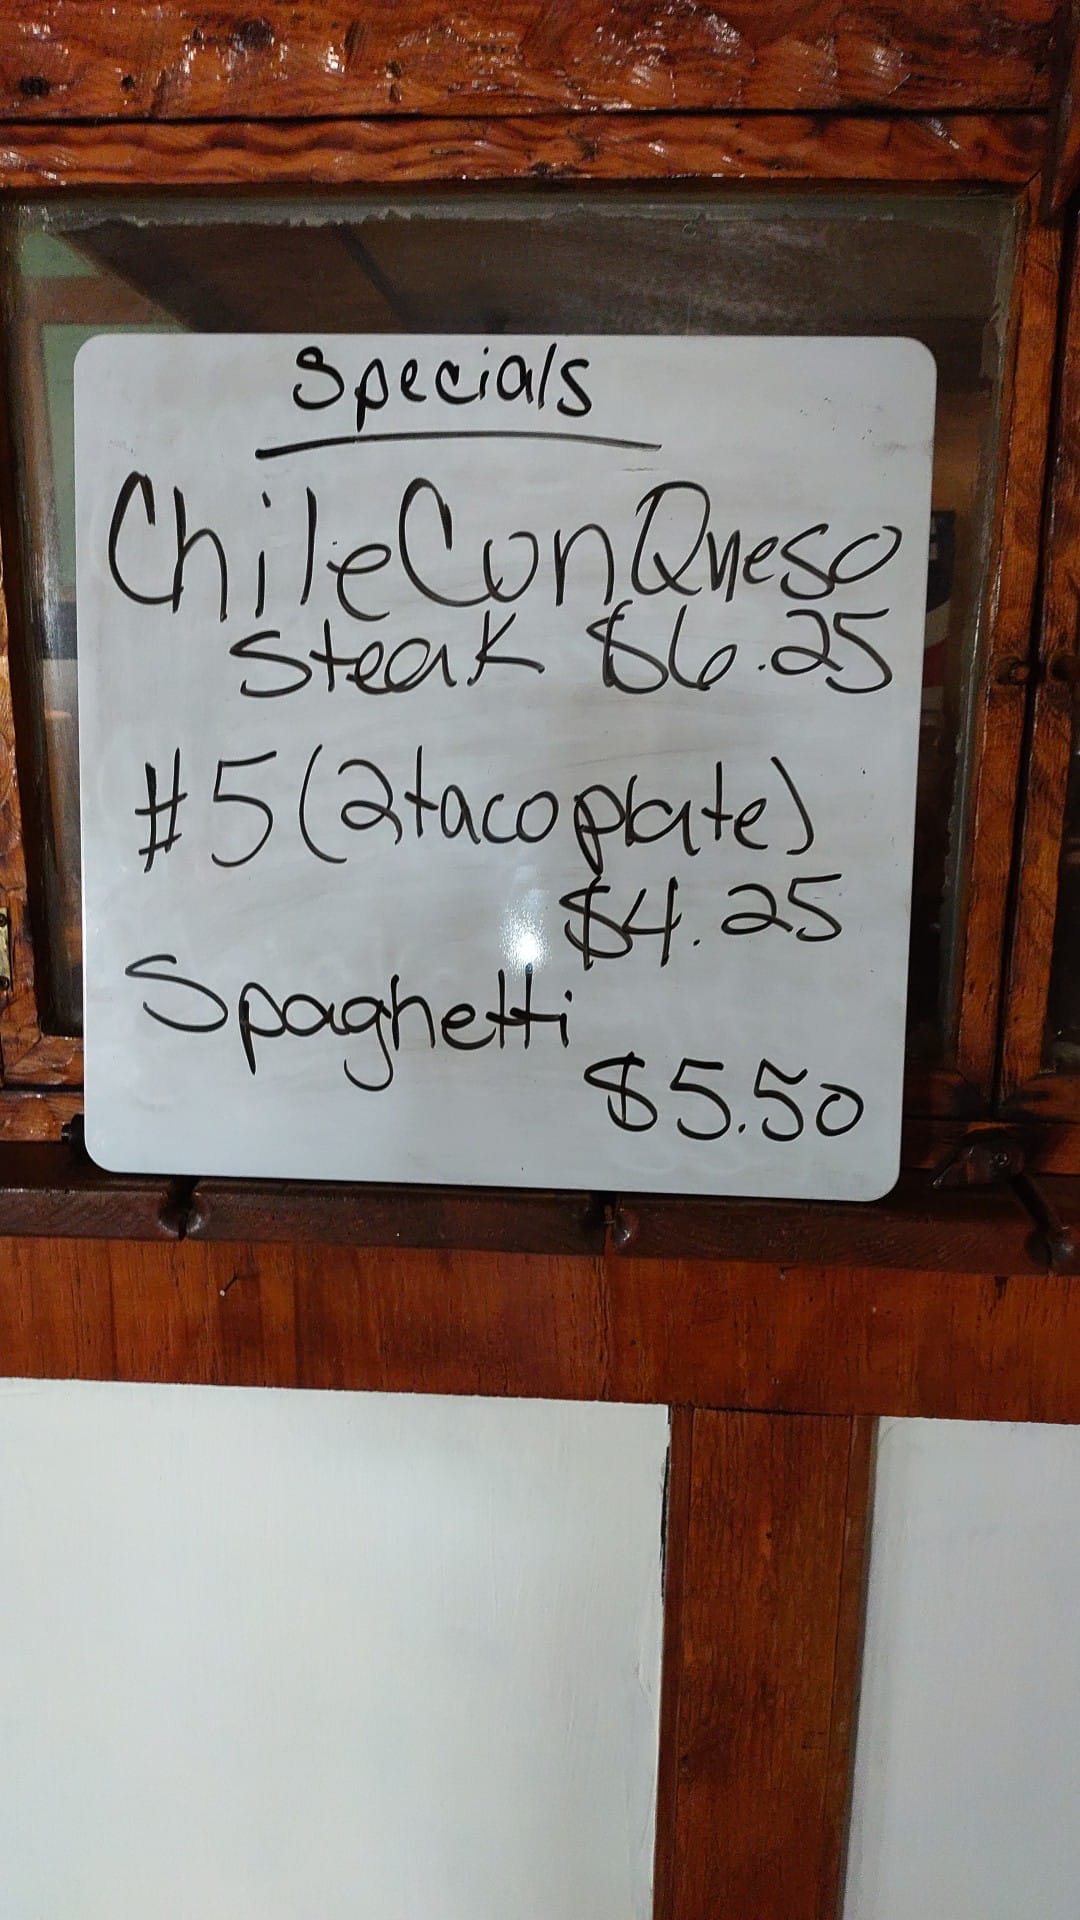 Specials
Chile Con Queso
Steak $6.25
#5 (2 taco plate)
$4.25
Spaghetti
$5.50